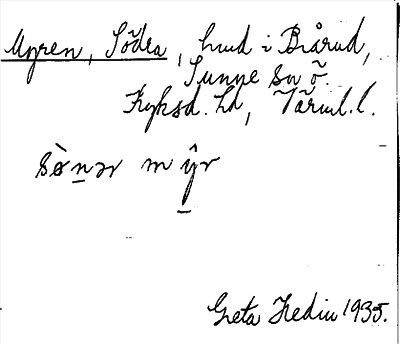 Myren, Södra, hmd i Brårud,
Sunne sn ö.
Fryksd. hd, Värml. l.
sò̀n̲ər mŷ̲r
Greta Hedin 1935.